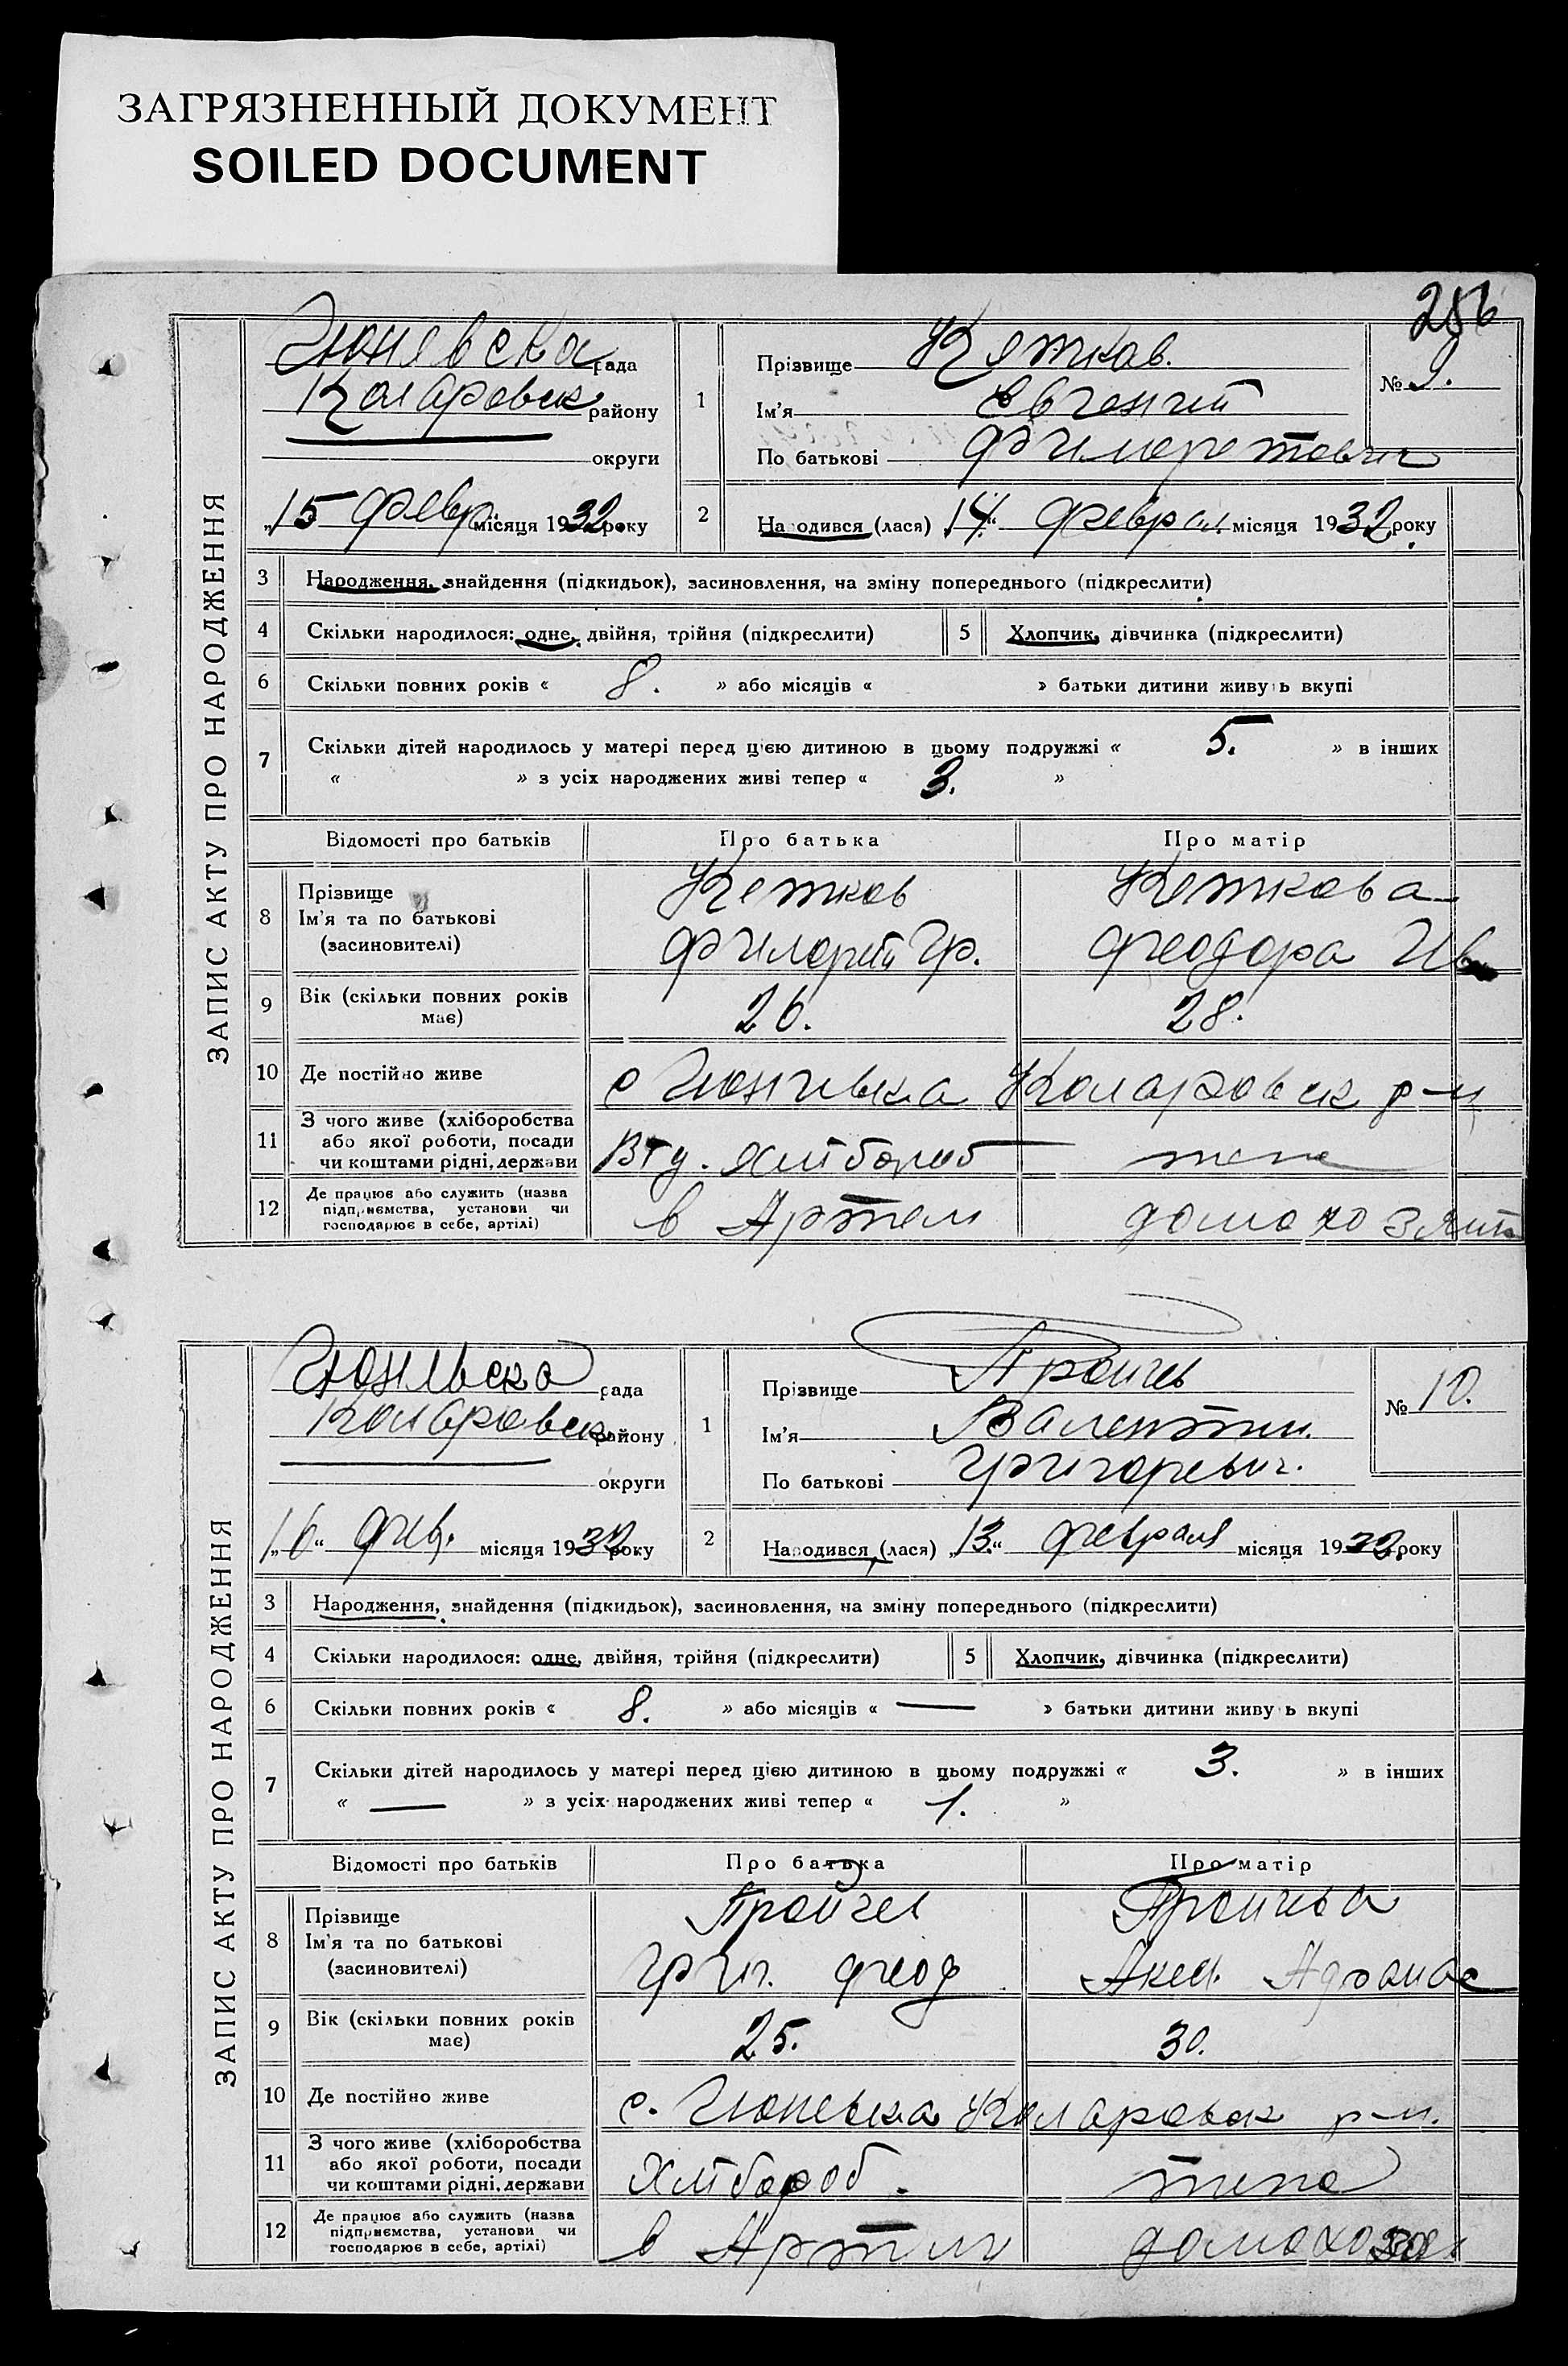 ЗАГРЯЗНЕННЫЙ ДОКУМЕНТ
SOILED DOCUMENT
256
ЗАПИС АКТУ ПРО НАРОДЖЕННЯ
Гюневска рада
Коларовск району
округи
„15 февр. місяця 1932 року
1
Прізвище
Ім'я Евгений
По батькові Филаретович
№ 9.
2
Народився (лася) „14“ феврал. місяця 1932 року
3 Народження, знайдення (підкидьок), засиновлення, на зміну попереднього (підкреслити)
4 Скільки народилося: одне, двійня, трійня (підкреслити) 5 Хлопчик, дівчинка (підкреслити)
6 Скільки повних років « 8. » або місяців « » батьки дитини живуть вкупі
7 Скільки дітей народилось у матері перед цією дитиною в цьому подружжі « 5. » в інших
« » з усіх народжених живі тепер « 3. »
Відомості про батьків Про батька Про матір
8 Прізвище
Ім'я та по батькові
(засиновителі)
Филарет Гр. Феодора Ив
9 Вік (скільки повних років має) 26. 28.
10 Де постійно живе с Гюневка Коларовск р-н
11 З чого живе (хліборобства
або якої роботи, посади
чи коштами рідні, держави
хлібороб жена
12 Де працює або служить (назва
підприємства, установи чи
господарює в себе, артілі)
в Артели домохозяйк
ЗАПИС АКТУ ПРО НАРОДЖЕННЯ
Гюневска рада
Коларовск району
округи
„16“ фев. місяця 1932 року
1
Прізвище Пройчев
Ім'я Валентин.
По батькові Григоревич.
№ 10.
2
Народився (лася) „13.“ февраля місяця 1932. року
3 Народження, знайдення (підкидьок), засиновлення, на зміну попереднього (підкреслити)
4 Скільки народилося: одне, двійня, трійня (підкреслити) 5 Хлопчик, дівчинка (підкреслити)
6 Скільки повних років « 8. » або місяців « — » батьки дитини живуть вкупі
7 Скільки дітей народилось у матері перед цією дитиною в цьому подружжі « 3. » в інших
« — » з усіх народжених живі тепер « 1. »
Відомості про батьків Про батька Про матір
8 Прізвище
Ім'я та по батькові
(засиновителі)
Пройчев Пройчева
Григ. Феод Аксн.
9 Вік (скільки повних років має) 25. 30.
10 Де постійно живе с. Гюневка Коларовск р-н.
11 З чого живе (хліборобства
або якої роботи, посади
чи коштами рідні, держави
Хлібороб. жена
12 Де працює або служить (назва
підприємства, установи чи
господарює в себе, артілі)
в Артели домохозя